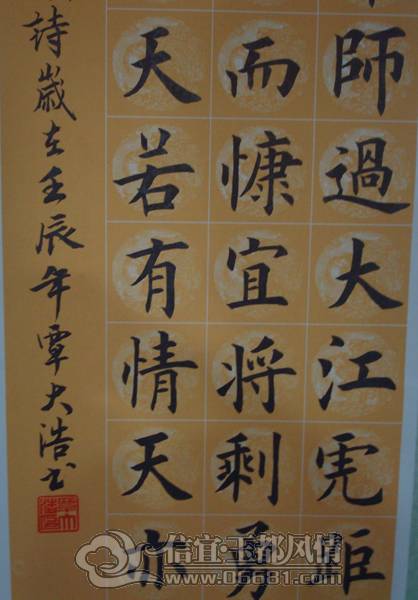 師過大江虎距
而慷宜將剩勇
天若有情天亦
詩歲在壬辰年覃大浩书
信宜·玉都风情
www.06681.com